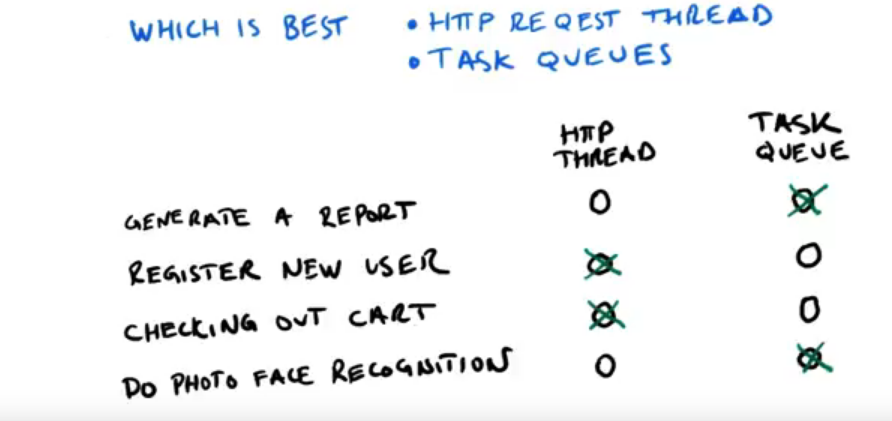 WHICH IS BEST • HTTP REQEST THREAD
• TASK QUEUES
HTTP THREAD TASK QUEUE
GENERATE A REPORT
REGISTER NEW USER
CHECKING OUT CART
DO PHOTO FACE RECOGNITION